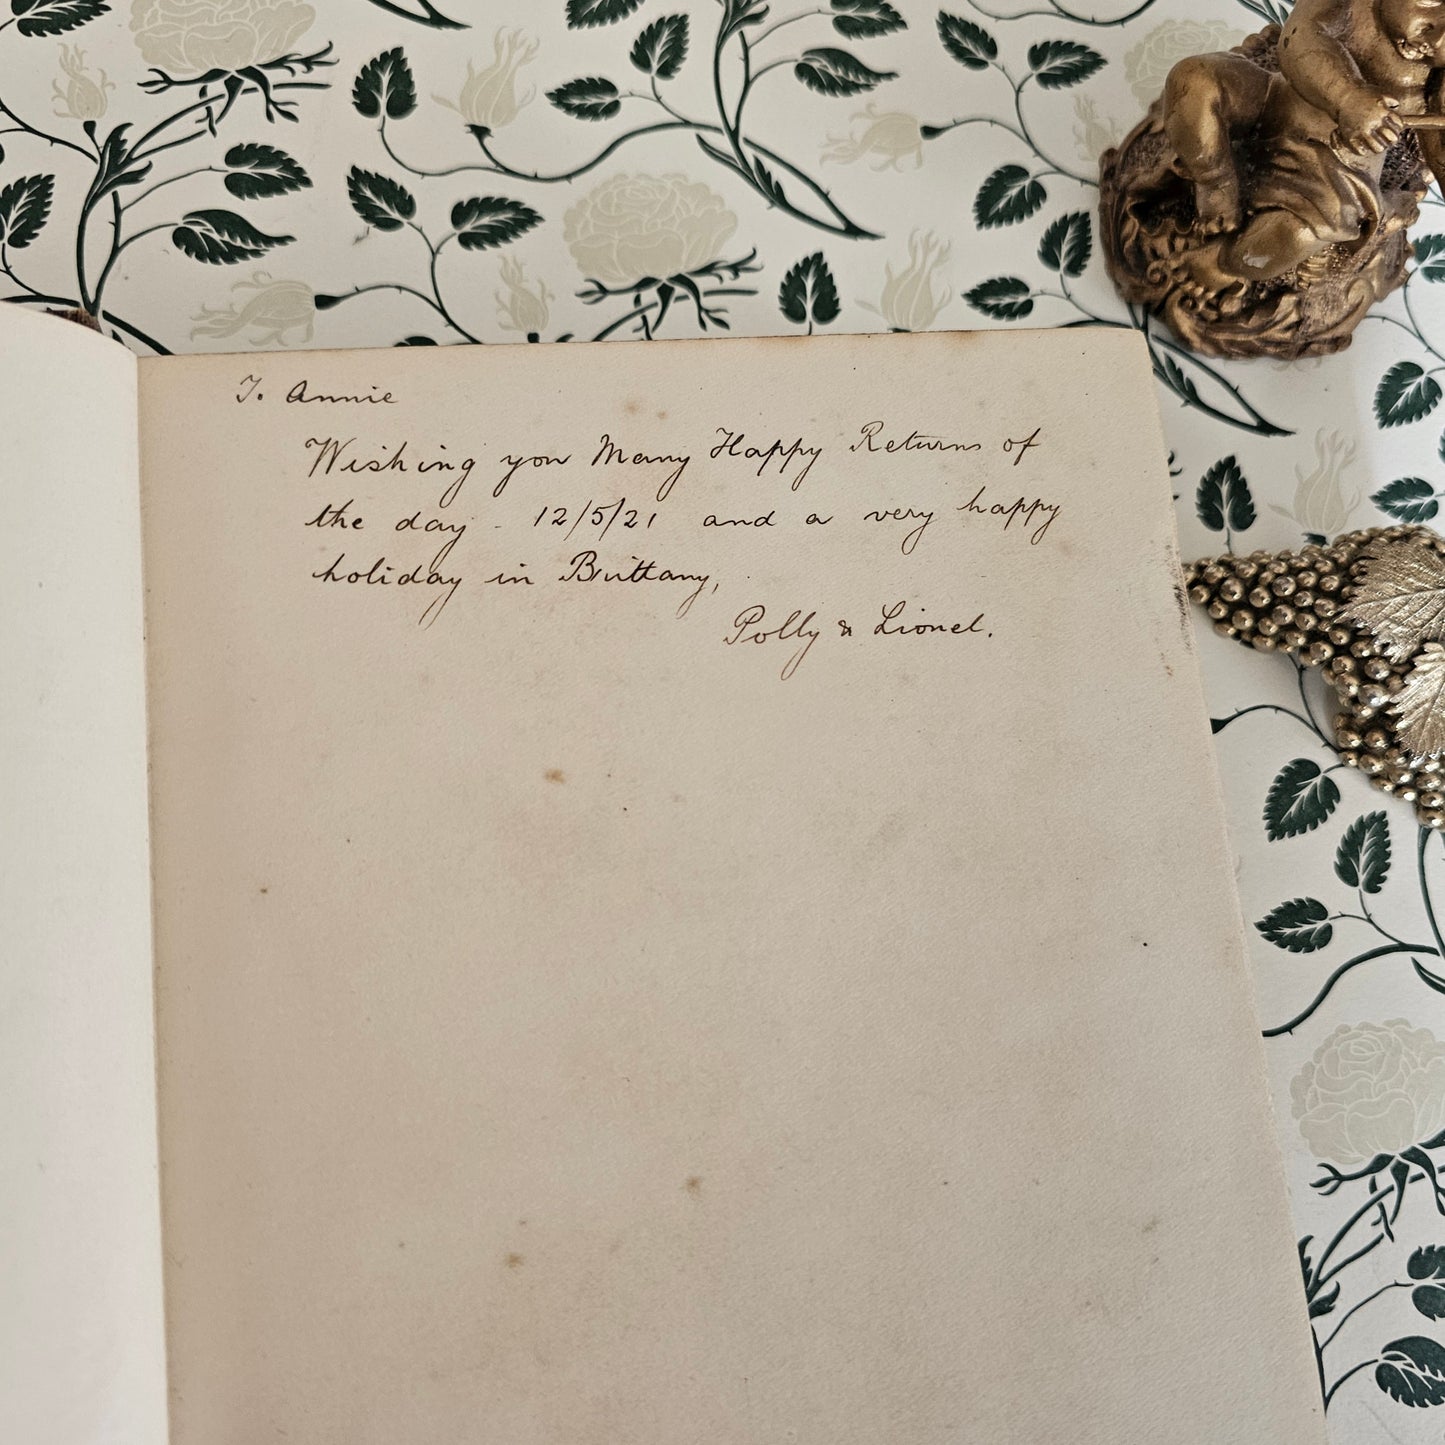 To Annie
Wishing you Many Happy Returns of
the day - 12/5/21 and a very happy
holiday in Brittany,
Polly & Lionel.